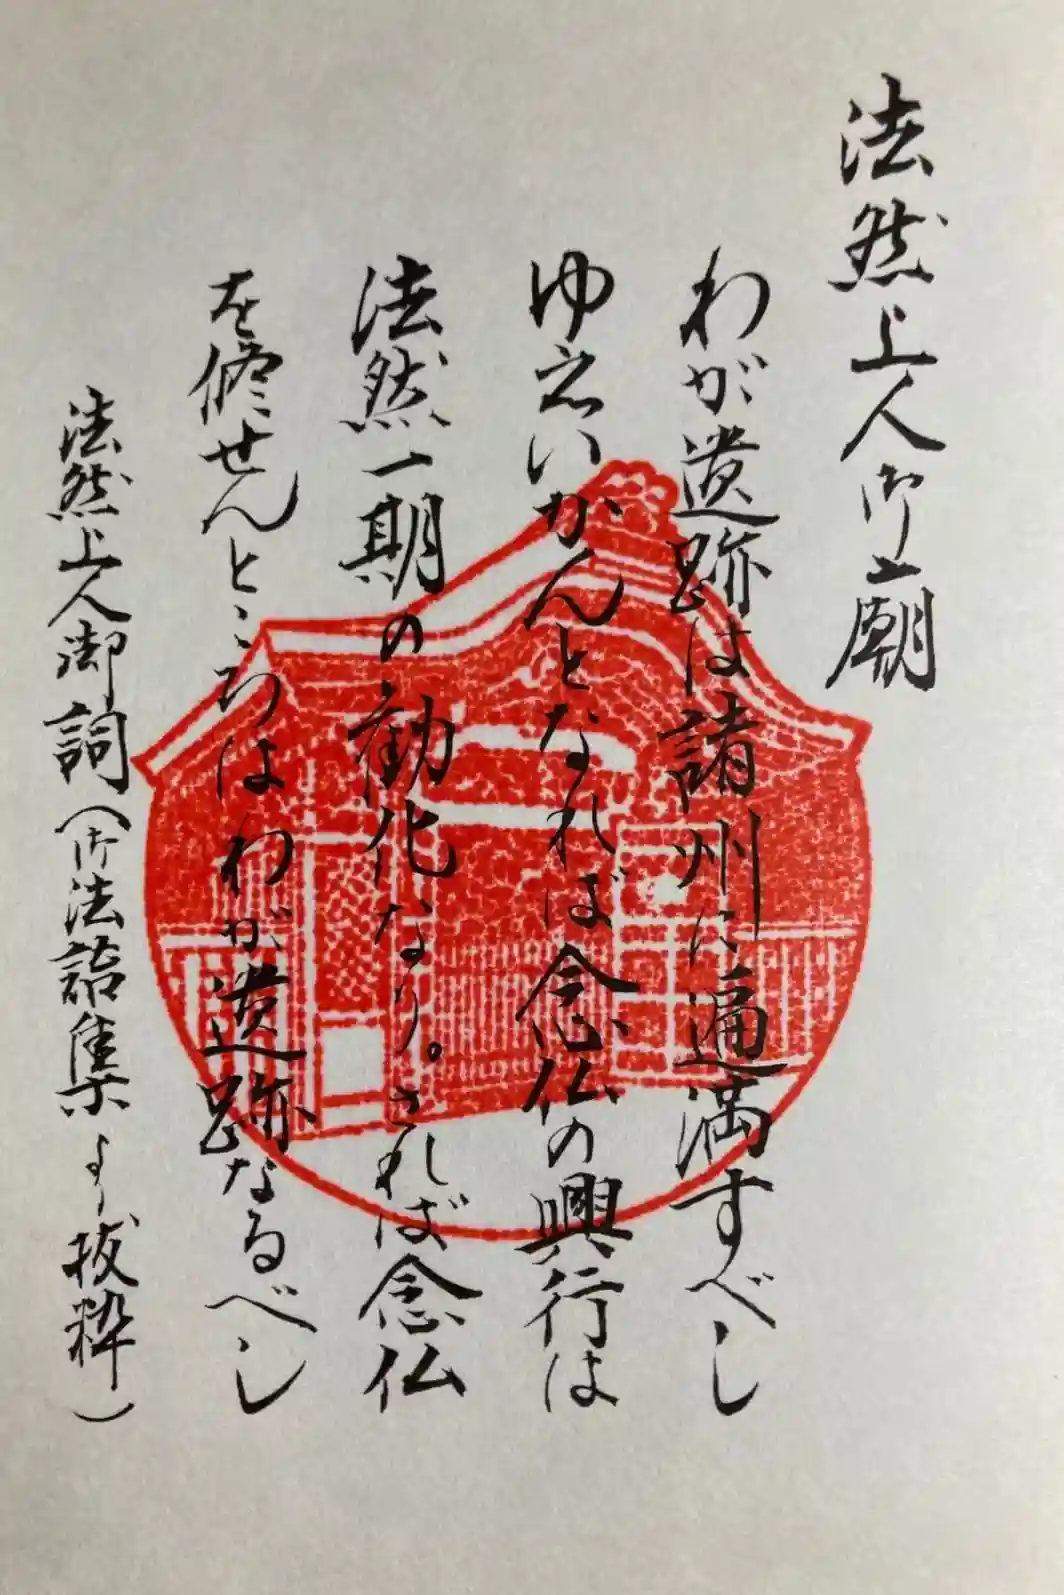 法然上人御廟
わが遺跡は諸州に遍満すべし
ゆえいかんとなれば念仏の興行は
法然一期の勧化なり。されば念仏
を修せんところはわが遺跡なるべし
法然上人御詞(御法語集より抜粋)